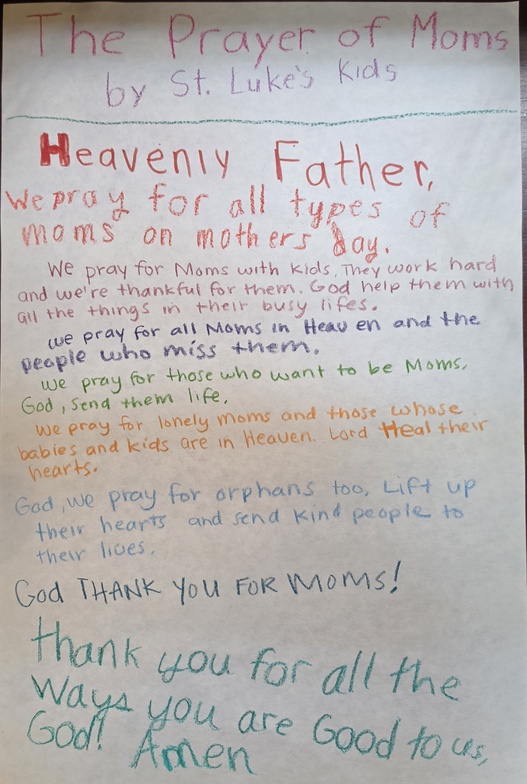 The Prayer of Moms
by St. Luke's Kids
Heavenly Father,
We pray for all types of
moms on mothers day.
We pray for Moms with kids. They work hard
and we're thankful for them. God help them with
all the things in their busy lifes.
we pray for all Moms in Heaven and the
people who miss them.
we pray for those who want to be Moms.
God, send them life.
we pray for lonely moms and those whose
babies and kids are in Heaven. Lord Heal their
hearts.
God, we pray for orphans too, Lift up
their hearts and send kind people to
their lives.
God THANK YOU FOR MOMS!
thank you for all the
Ways you are Good to us,
God! Amen